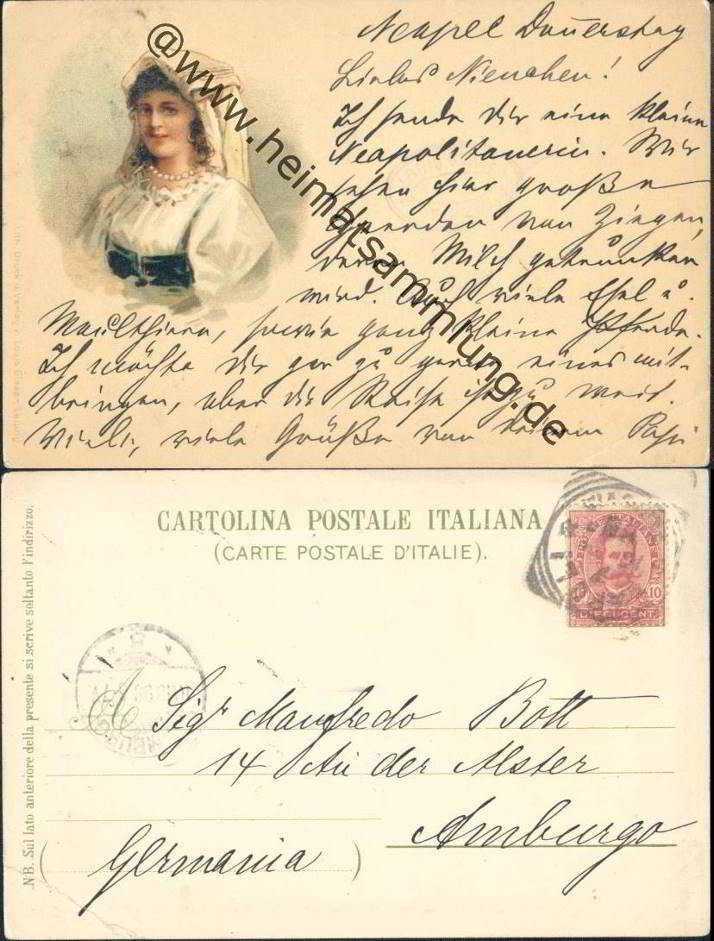 Neapel Donnerstag
Liebes Nienchen!
Ich sende Dir eine kleine
Neapolitanerin. Wir
sehen hier große
Heerden von Ziegen,
deren Milch getrunken
wird. Auch viele Esel u.
Maulthiere, sowie ganz kleine Pferde.
Ich möchte Dir gar zu gerne eines mit-
bringen, aber die Reise ist zu weit.
Viele, viele Grüße von Deinem Papi
@www.heimatsammlung.de
CARTOLINA POSTALE ITALIANA
(CARTE POSTALE D'ITALIE).
10 10
DIECI CENT
NB. Sul lato anteriore della presente si scrive soltanto l'indirizzo.
A Sigr Manfredo Bott
14 An der Alster
Amburgo
(Germania)